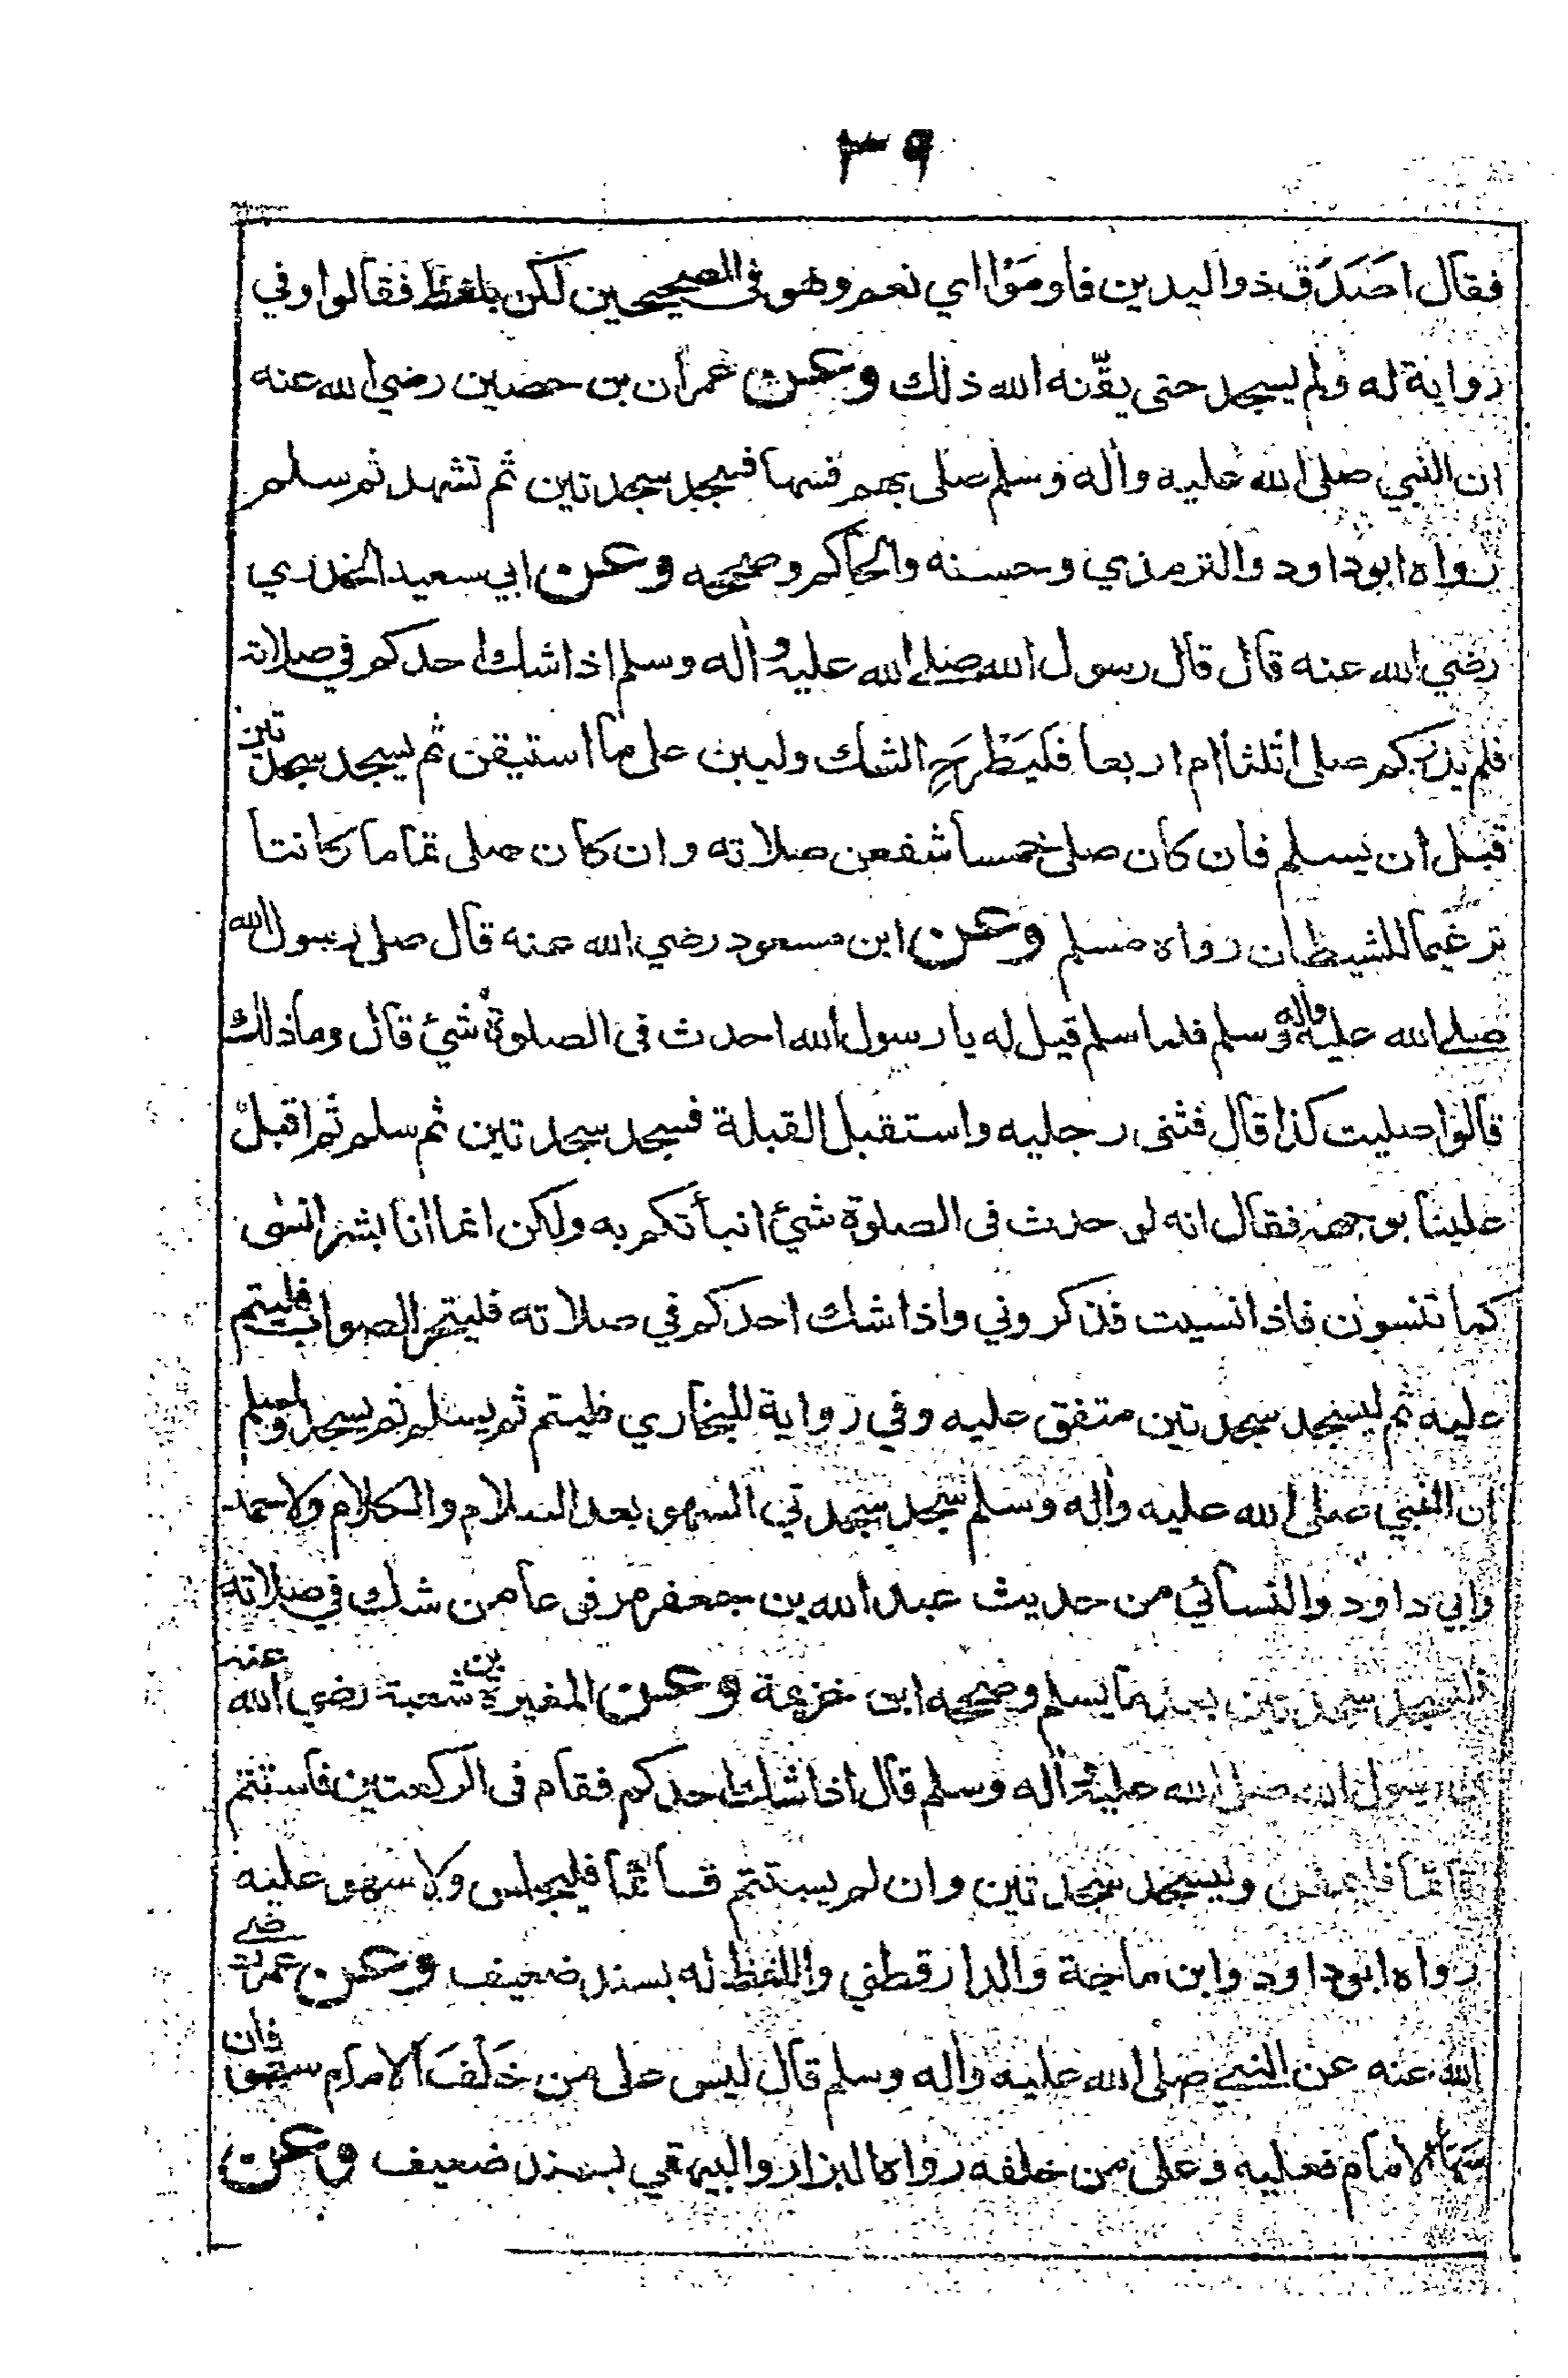 ٣٩
فقال اصَدَقَ ذو اليدين فاومَؤا اي نعم وهو في الصحيحين لكن بلفظ فقالوا وفي
رواية له ولم يسجد حتى يقّنه الله ذلك وعن عمران بن حصين رضي الله عنه
ان النبي صلى الله عليه واله وسلم صلى بهم فسها فسجد سجدتين ثم تشهد ثم سلم
رواه ابو داود والترمذي وحسنه والحاكم وصححه وعن ابي سعيد الخدري
رضي الله عنه قال قال رسول الله صلى الله عليه واله وسلم اذا شك احدكم في صلاته
فلم يدر كم صلى اثلثا ام اربعا فليَطْرَحِ الشك وليبن على ما استيقن ثم يسجد سجدتين
قبل ان يسلم فان كان صلى خمسا شفعن صلاته وان كان صلى تماما كانتا
ترغيما للشيطان رواه مسلم وعن ابن مسعود رضي الله عنه قال صلى رسول الله
صلى الله عليه واله وسلم فلما سلم قيل له يا رسول الله احدث في الصلوة شيء قال وما ذلك
قالوا صليت كذا قال فثنى رجليه واستقبل القبلة فسجد سجدتين ثم سلم ثم اقبل
علينا بوجهه فقال انه لو حدث في الصلوة شيء انبأتكم به ولكن انما انا بشر انسى
كما تنسون فاذا نسيت فذكروني واذا شك احدكم في صلاته فليتحر الصواب فليتم
عليه ثم ليسجد سجدتين متفق عليه وفي رواية للبخاري فليتم ثم يسلم ثم يسجد ولمسلم
ان النبي صلى الله عليه واله وسلم سجد سجدتي السهو بعد السلام والكلام ولاحمد
وابي داود والنسائي من حديث عبد الله بن جعفر مرفوعا من شك في صلاته
فليسجد سجدتين بعد ما يسلم وصححه ابن خزيمة وعن المغيرة بن شعبة رضي الله عنه
ان رسول الله صلى الله عليه واله وسلم قال اذا شك احدكم فقام في الركعتين فاستتم
قائما فليمض وليسجد سجدتين وان لم يستتم قائما فليجلس ولا سهو عليه
رواه ابو داود وابن ماجة والدارقطني واللفظ له بسند ضعيف وعن عمر رضي
الله عنه عن النبي صلى الله عليه واله وسلم قال ليس على من خَلْفَ الامام سهو فان
سَهَا الامام فعليه وعلى من خلفه رواه البزار والبيهقي بسند ضعيف وعن